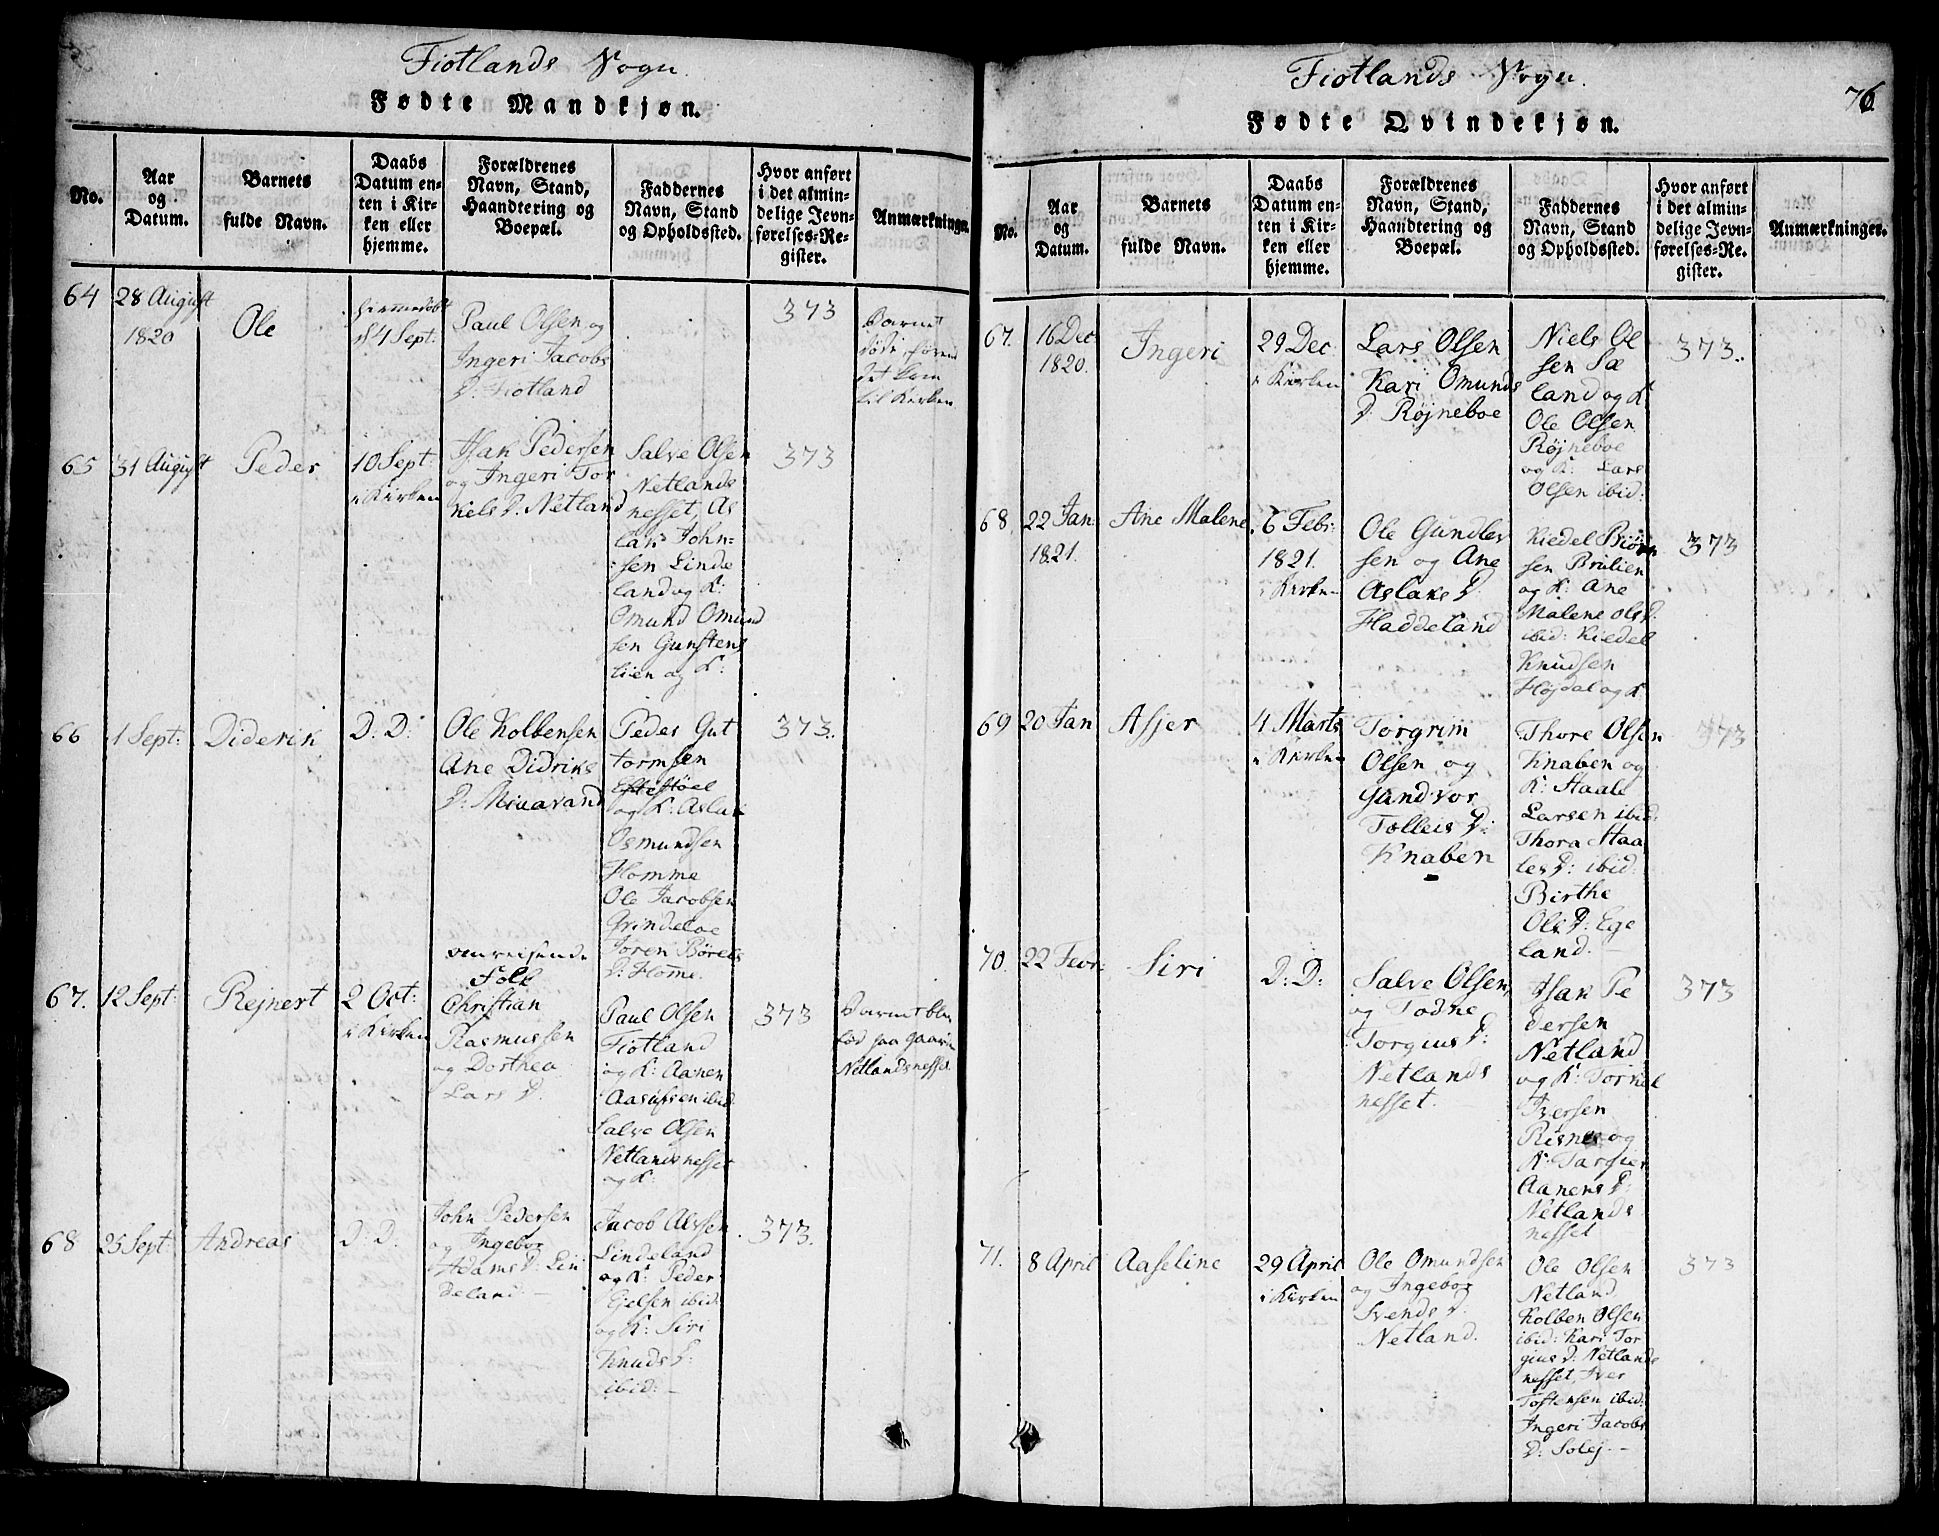 Fiotlands Sogn.
Fødte Mandkjøn.
No.
Aar
og
Datum.
Barnets
fulde Navn.
Daabs
Datum en-
ten i Kir-
ken eller
hjemme.
Forældrenes
Navn, Stand,
Haandtering og
Boepæl.
Faddernes
Navn, Stand
og Opholdssted.
Hvor anført
i det almin-
delige Jevn-
førelses-Re-
gister.
Anmærkninger.
64
28 August
1820
Ole
hjemmedøbt
4 Sept:
Paul Olsen og
Ingeri Jacobs
D: Fiotland
373
Barnet
døde førend
det kom
til Kirken
65
31 August
Peder
10 Sept:
i Kirken
Asak Pedersen
og Ingeri Tor
kels D: Netland
Salve Olsen
Netlands
nesset, As
lak John=
sen Linde
land og K:
Omund Omund
sen Gunstens
lien og K:
373
66
1 Sept:
Diderik
D: D:
Ole Kolbensen
Ane Didriks
D: Miaavand
Peder Gut
tormsen
Eftestøel
og K: Aslak
Osmundsen
Homme
Ole Jacobsen
Grindeloe
Joren Børels
D: Home.
373.
67.
12 Sept:
Rejnert
2 Oct:
i Kirken
omreisende
Folk
Christian
Rasmussen
og Dorthea
Lars D.
Paul Olsen
Fiotland
og K: Aanen
Aasulfsen ibid
Salve Olsen
Netlandsnesset
og K:
373
Barnet blev
fød paa Gaarden
Netlandsnesset
68
25 Sept:
Andreas
D: D.
John Pedersen
og Ingebor
Adams D: Lin
deland. -
Jacob Alvsen
Lindeland
og K: Peder
Gjelsen ibid
og K: Siri
Knuds D:
ibid: -
373.
Fiotlands Sogn.
76
Fødte Qvindekjøn.
No.
Aar
og
Datum.
Barnets
fulde Navn.
Daabs
Datum en-
ten i Kir-
ken eller
hjemme.
Forældrenes
Navn, Stand,
Haandtering og
Boepæl.
Faddernes
Navn, Stand
og Opholdssted.
Hvor anført
i det almin-
delige Jevn-
førelses-Re-
gister.
Anmærkninger.
67.
16 Dec
1820.
Ingeri
29 Dec
i Kirken
Lars Olsen
Kari Omunds
D: Røjneboe
Niels Ol
sen Sæ
land og K:
Ole Olsen
Røjneboe
og K: Lars
Olsen ibid:
373.
68.
22 Jan:
1821.
Ane Malene
6 Febr:
1821.
i Kirken
Ole Gundler
sen og Ane
Aslaks D:
Haddeland
Kiedel Biørn
sen Brulien
og K: Ane
Malene Ols D.
ibid: Kiedel
Knudsen
Højdal og K
373
69
20 Jan
Asser
4 Marts
i Kirken
Torgrim
Olsen og
Gandvor
Tolleis D:
Knaben
Thore Olsen
Knaben og
K: Haale
Larsen ibid:
Thora Haa
les D: ibid:
Birthe
Ols D: Ege
land.
373
70.
22 Febr:
Siri
D: D:
Salve Olsen,
og Todne
Torgius D:
Netlands
nesset.
Asak Pe
dersen
Netland
og K: Torkel
Iversen
Risnes og
K: Targier
Aanens D:
Netlands
nesset
373
71.
8 April
Aaseline
29 April
i Kirken
Ole Omundsen
og Ingebor
Svends D.
Netland.
Ole Olsen
Netland
Kolben Olsen
ibid: Kari Tor
gius D: Netlands
nesset, Iver
Tostensen ibid:
Ingeri Jacobs
D: Solej. -
373